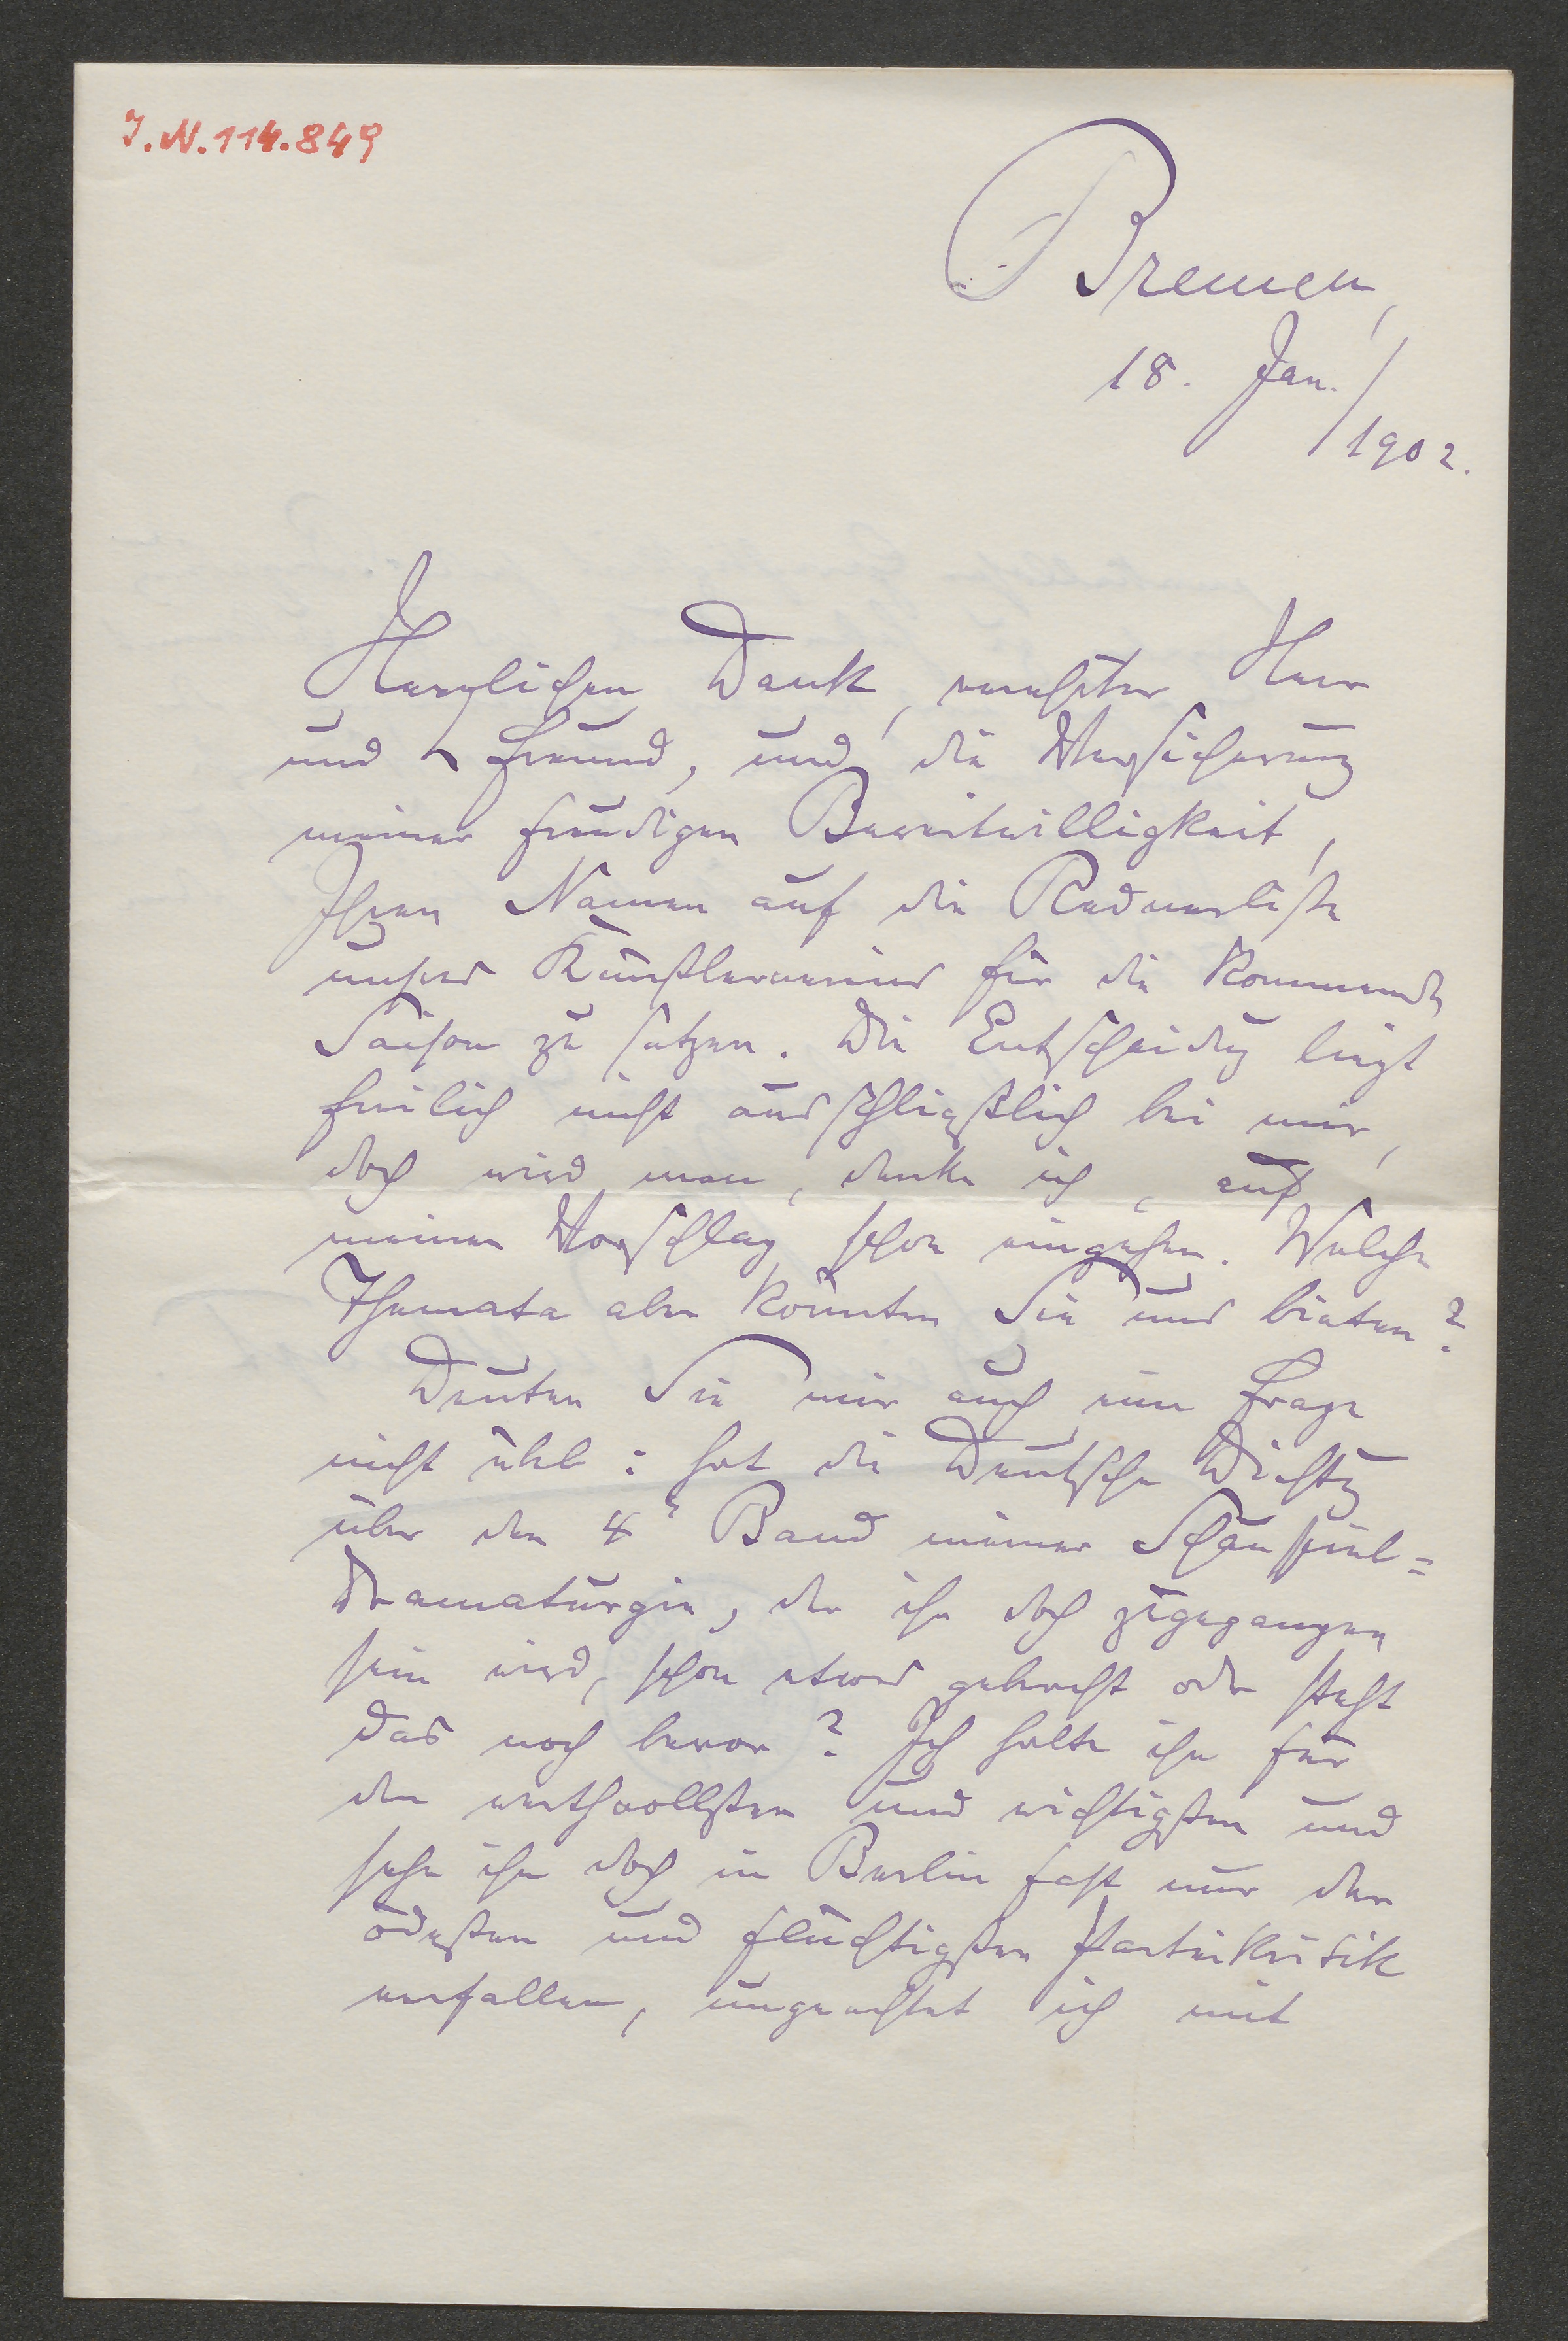 J.N.114.849
Bremen,
18. Jan./
1902.
Herzlichen Dank, verehrter Herr
und Freund, und die Versicherung
meiner freudigen Bereitwilligkeit,
Ihren Namen auf die Rednerliste
unsres Künstlervereins für die kommende
Saison zu setzen. Die Entscheidg liegt
freilich nicht ausschließlich bei mir,
doch wird man, denke ich, auf
meinen Vorschlag schon eingehen. Welche
Themata aber könnten Sie uns bieten?
Deuten Sie mir auch eine Frage
nicht übel: hat die Deutsche Dichtg
über den 4n Band meiner Schauspiel=
Dramaturgie, der ihr doch zugegangen
sein wird, schon etwas gebracht oder steht
das noch bevor? Ich halte ihn für
den werthvollsten und wichtigsten und
sehe ihn doch in Berlin fast nur der
ödesten und flüchtigsten Parteikritik
verfallen, ungeachtet ich mit